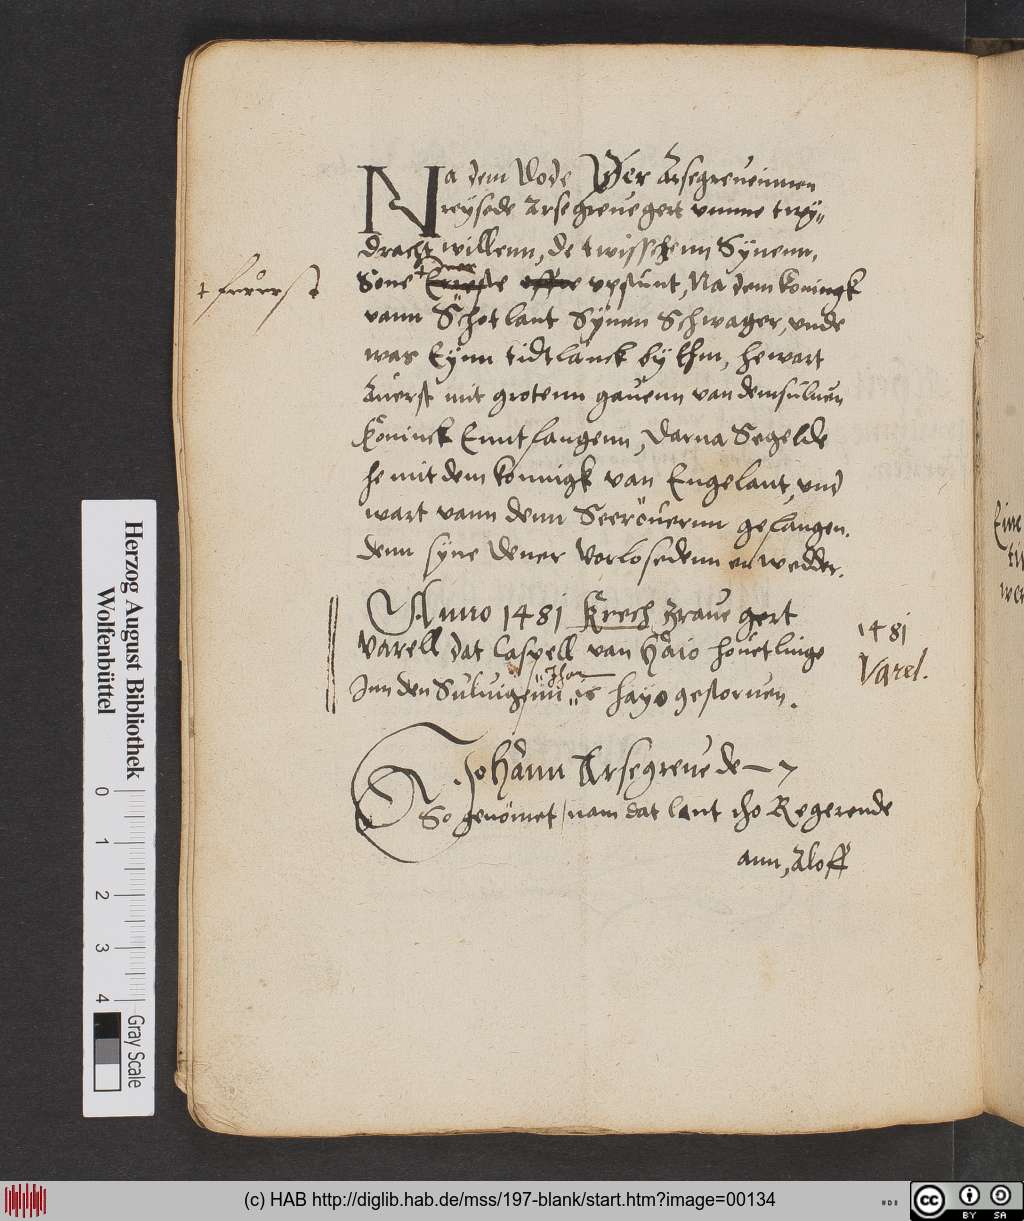 Na dem Dode Der Arsegreueinnen
reysede Arsegreue gert vmme twy„
dracht willenn, de twisschenn Synenn,
Sone upstunt, Na dem koningk
vann Schotlant Synen Schwager, vnde
was Eynn tidtlanck by Ehm, he wart
Auerst mit grotenn gauenn van demsuluen
Koninck Enntfangenn, Darna Segelde
he mit dem konnigk van Engelant, vnd
wart vann denn Seeröuernn gefangen.
denn syne Dener Vorlosedenn en wedder.
Anno 1481 Krech Graue gert
Varell dat Caspell van Haio houetlinge
Inn den Suluigenn Jhar is hayo gestoruen.
1481
Varel.
Johann Arsegreue de 7
So genömet / nam dat lant tho Regerende
ann, Aloff
Herzog August Bibliothek
Wolfenbüttel
0 1 2 3 4
Gray Scale
(c) HAB http://diglib.hab.de/mss/197-blank/start.htm?image=00134
cc BY SA